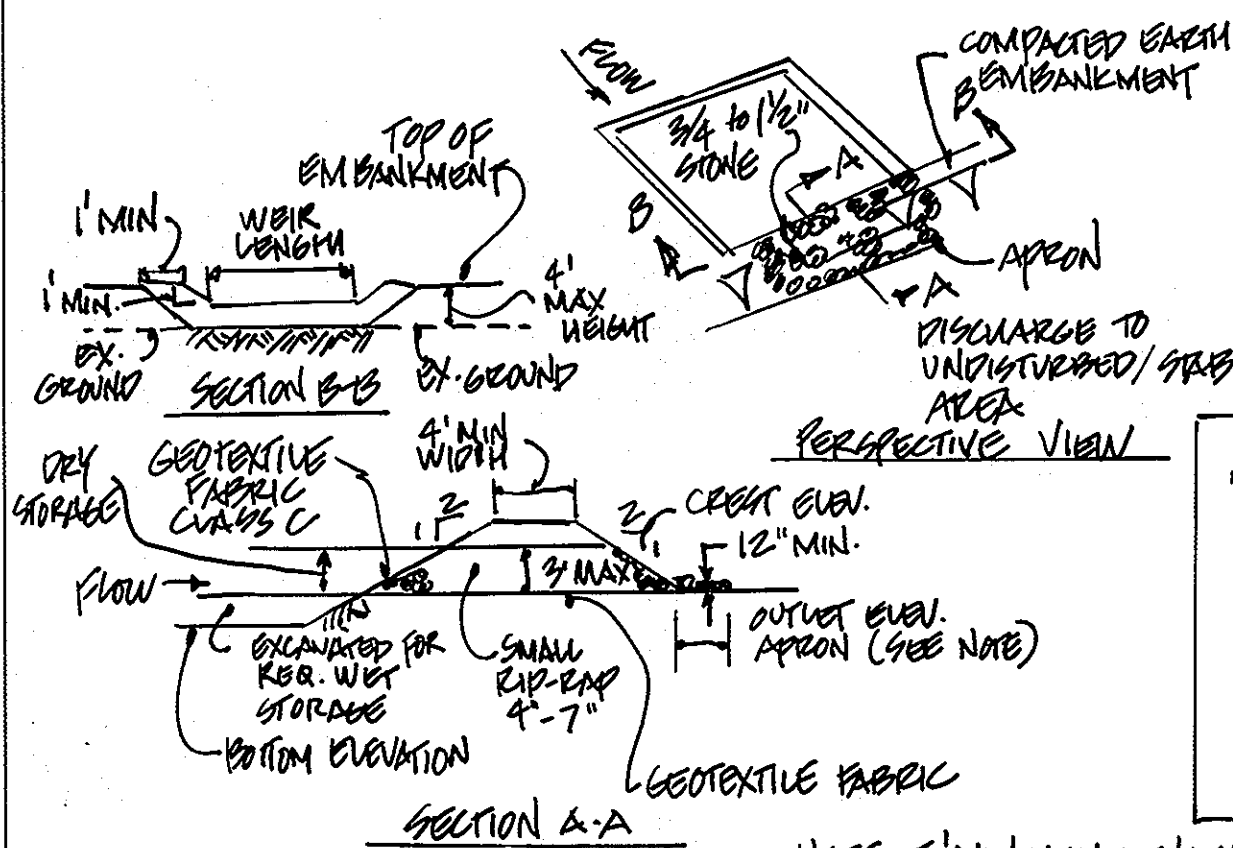 FLOW
COMPACTED EARTH
EMBANKMENT
B
3/4 to 1 1/2"
STONE
A
B
A
APRON
DISCHARGE TO
UNDISTURBED/STAB
AREA
PERSPECTIVE VIEW
TOP OF
EMBANKMENT
1' MIN
WEIR
LENGTH
1' MIN.
4'
MAX
HEIGHT
EX.
GROUND
EX. GROUND
SECTION B-B
DRY
STORAGE
GEOTEXTILE
FABRIC
CLASS C
4' MIN
WIDTH
2
1
2
1
CREST ELEV.
12" MIN.
3' MAX
FLOW
OUTLET ELEV.
APRON (SEE NOTE)
EXCAVATED FOR
REQ. WET
STORAGE
SMALL
RIP-RAP
4"-7"
BOTTOM ELEVATION
GEOTEXTILE FABRIC
SECTION A-A